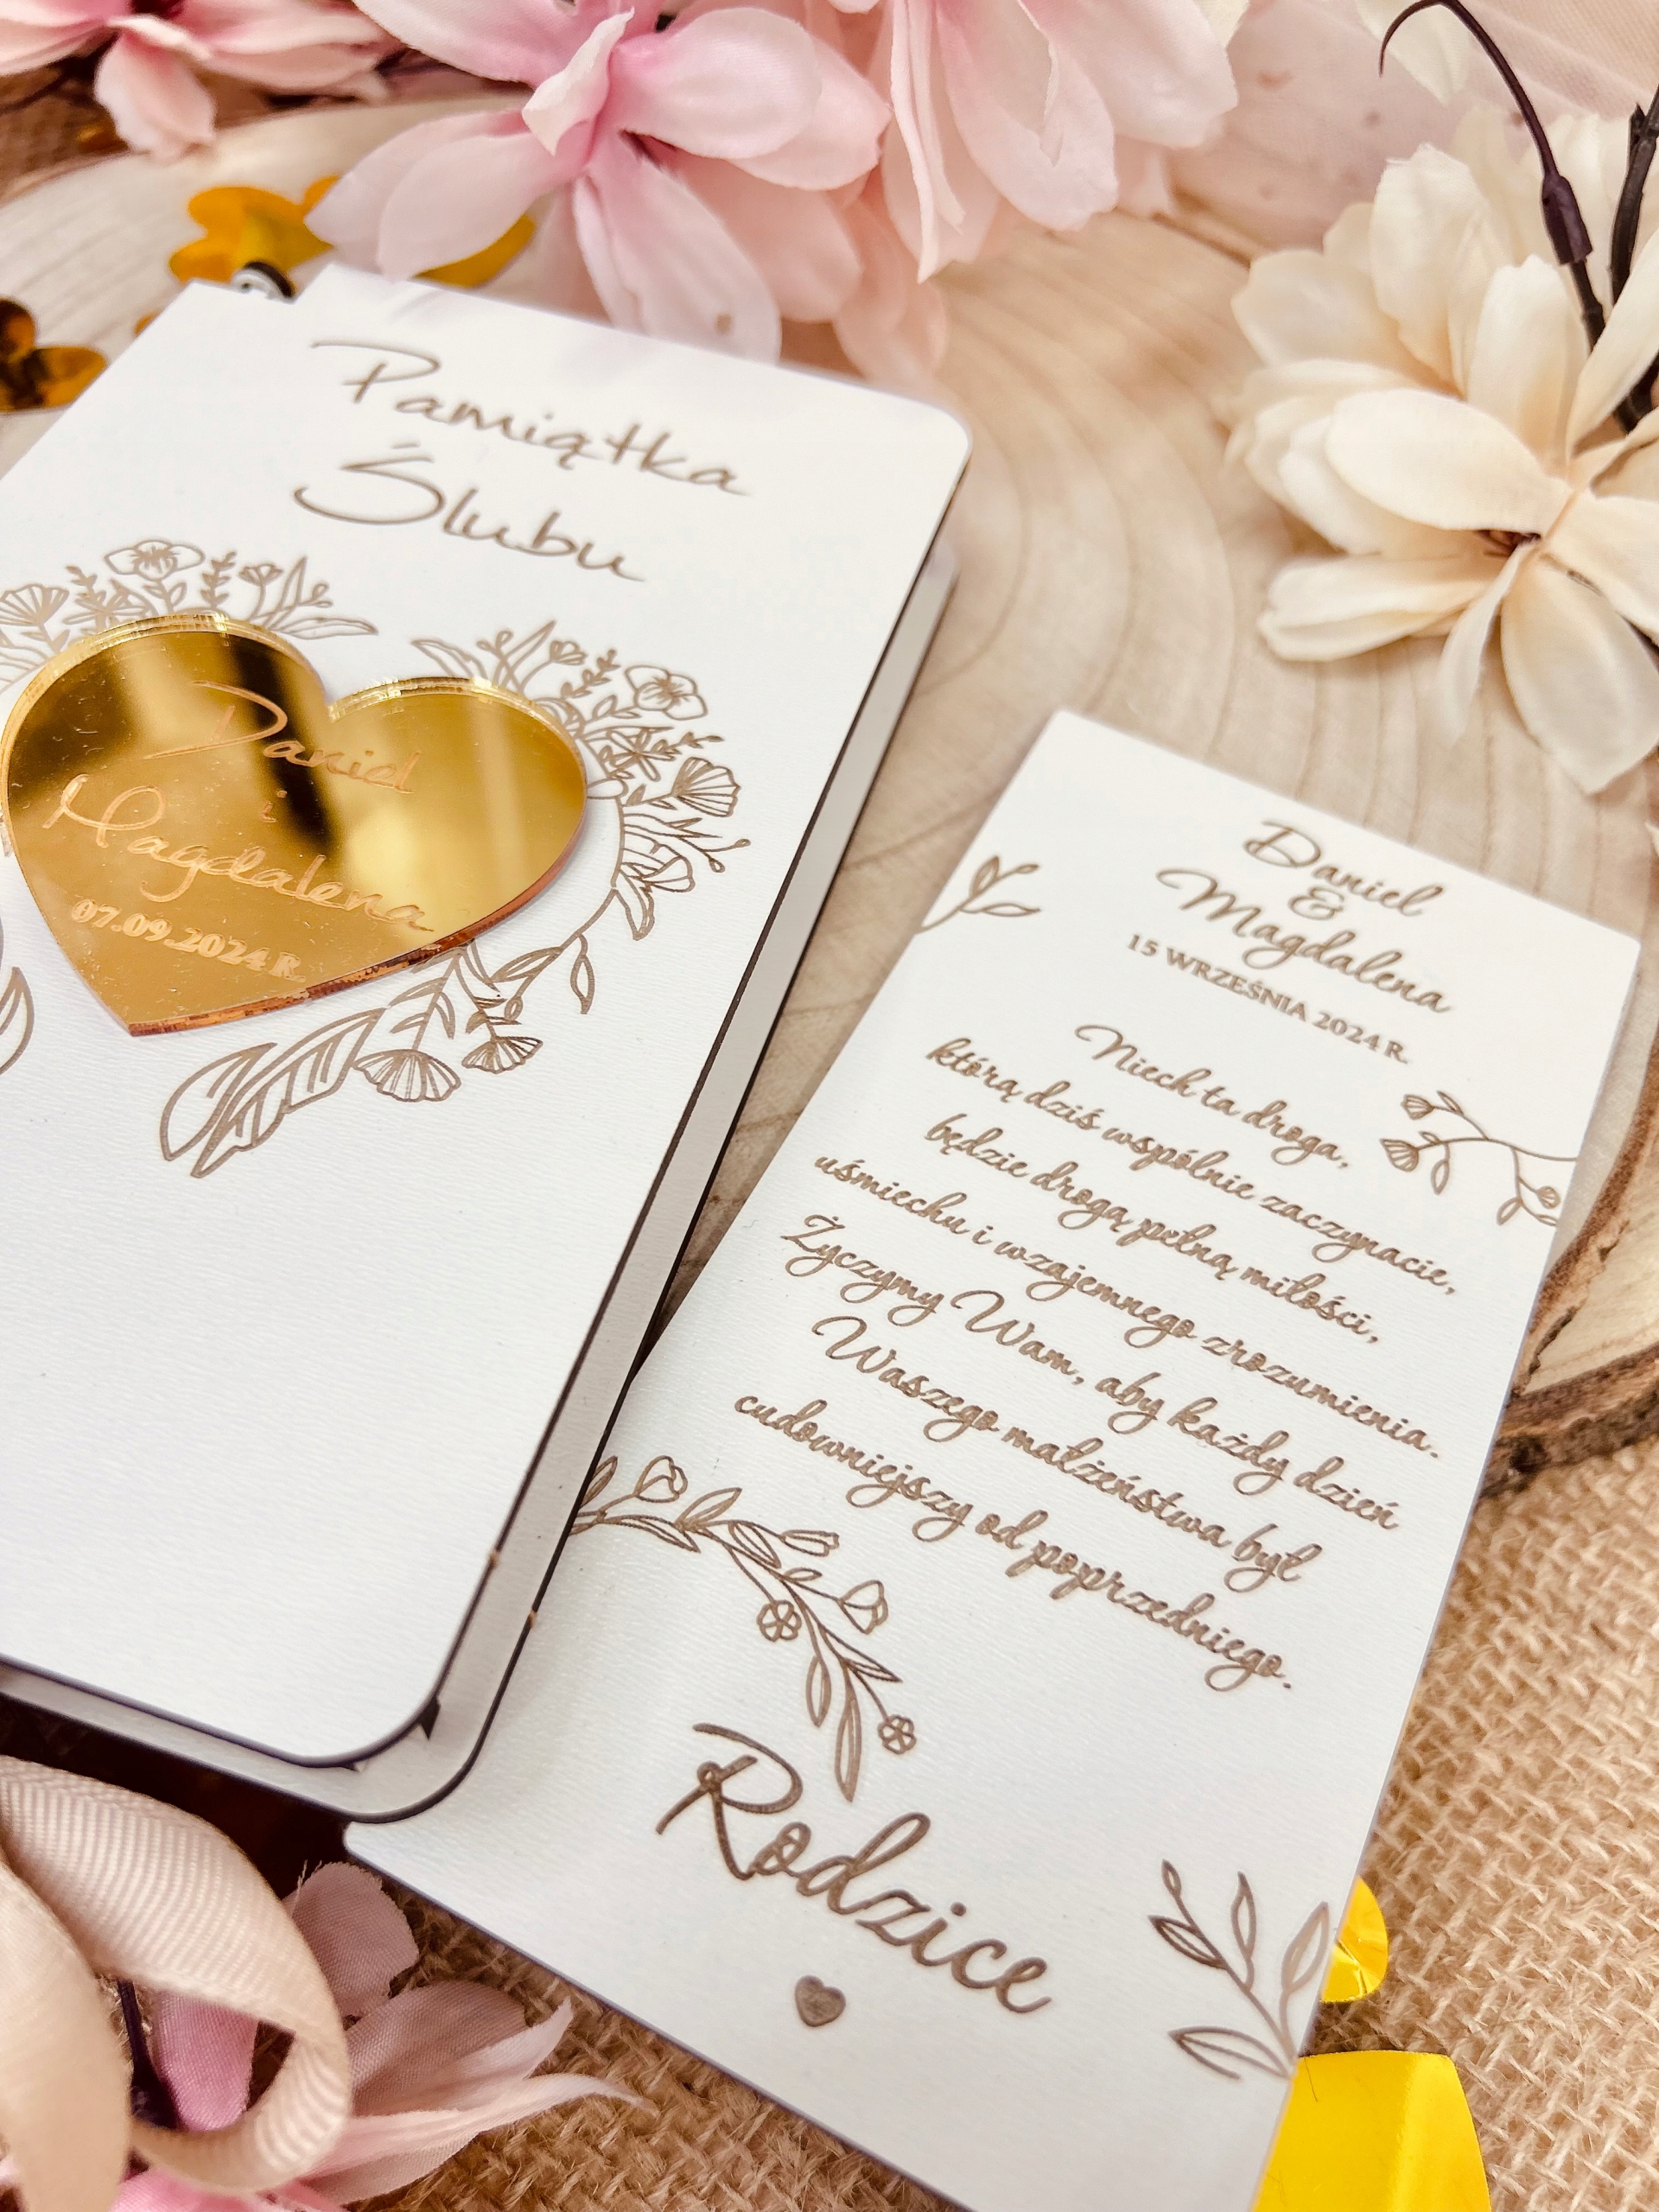 Pamiątka
Ślubu
Daniel
i
Magdalena
07.09.2024 R.
Daniel
&
Magdalena
15 WRZEŚNIA 2024 R.
Niech ta droga,
którą dziś wspólnie zaczynacie,
będzie drogą pełną miłości,
uśmiechu i wzajemnego zrozumienia.
Życzymy Wam, aby każdy dzień
Waszego małżeństwa był
cudowniejszy od poprzedniego.
Rodzice